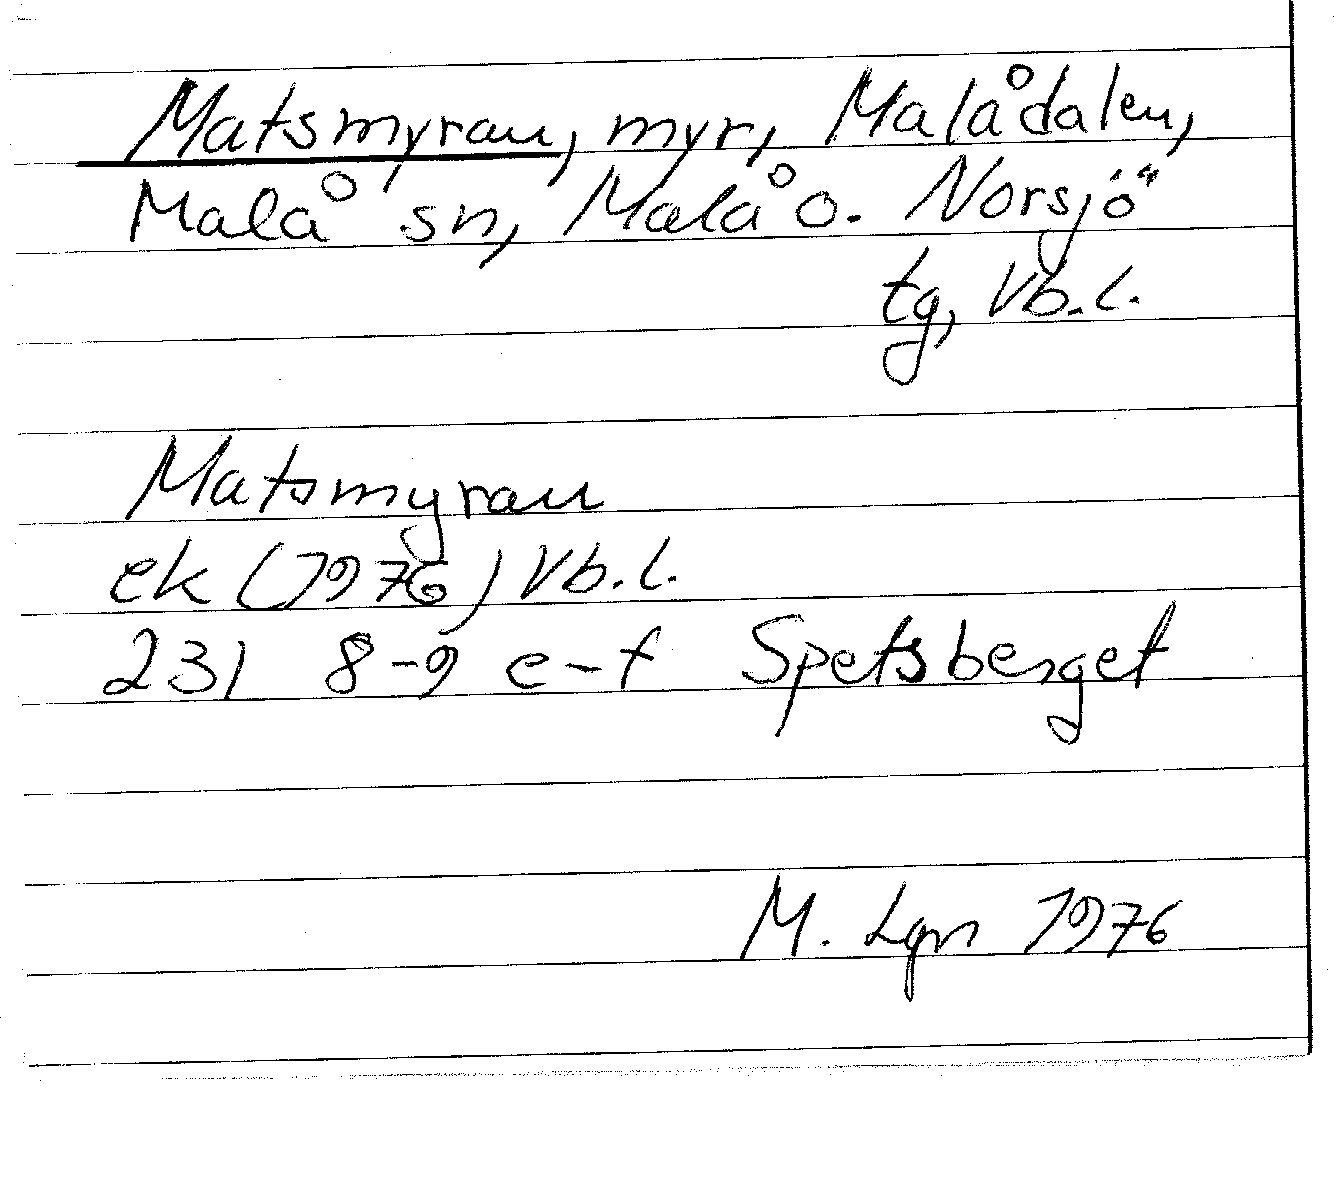 Matsmyran, myr, Malådalen,
Malå sn, Malå o. Norsjö
tg, Vb.l.
Matsmyran
ek (1976) Vb.l.
231 8-9 e-f Spetsberget
M. Lgn 1976